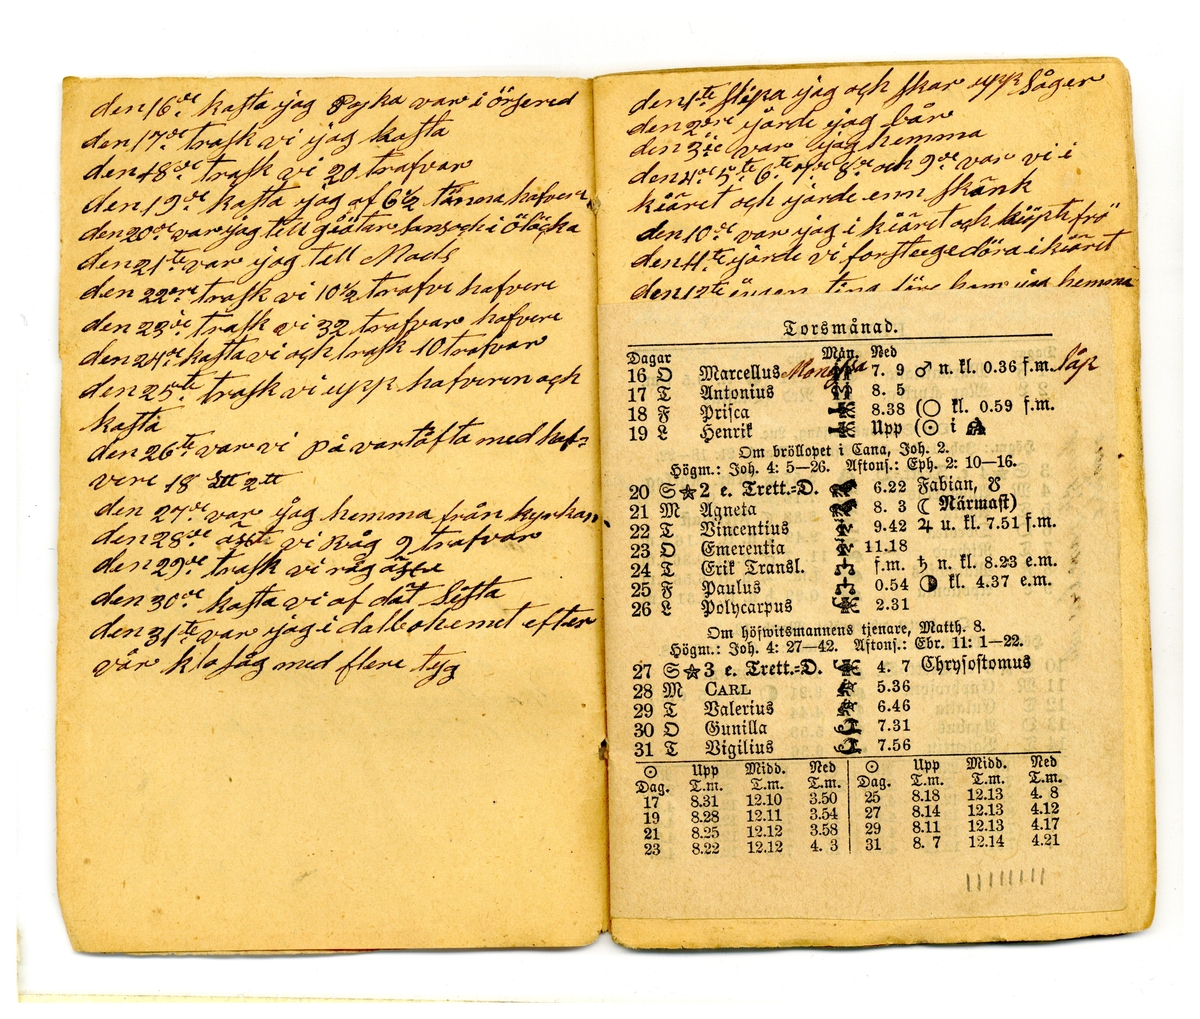 den 16de kasta jag Pojka var i örjered
den 17de trask vi jag kasta
den 18de trask vi 20 trafvar
den 19de kasta jag af 6½ tänora hafvere
den 20de var jag tell giötar
den 21te var jag tell Mads
den 22dre trask vi 10½ trafvi hafvere
den 23de trask vi 32 trafvar hafvere
den 24de kasta vi och trask 10 trafvar
den 25te trask vi upp hafveren och
kasta
den 26te var vi På vartöfta med haf=
vere 18
den 27de var jag hemma från kyrkan
den 28de vi Råg 9 trafvar
den 29de trask vi råg
den 30de kasta vi af dät Sista
den 31te var jag i dalbohemet efter
vår klosåg med flere tyg
den 1ste slipa jag och skar upp Såger
den 2dre järde jag bår
den 3ie var jag hemma
den 4de 5te 6te 7de 8de och 9de var vi i
kiäret och järde enn skänk
den 10de var jag i kiäret och köpte frö
den 11te järde vi forsteege döra i kiäret
den 12te hemma
Torsmånad.
Dagar Mån. Ned
16 O Marcellus 7. 9 ♂ n. kl. 0.36 f.m. Såp
17 T Antonius 8. 5
18 F Prisca 8.38 (○ kl. 0.59 f.m.
19 L Henrik Upp (☉ i
Om bröllopet i Cana, Joh. 2.
Högm.: Joh. 4: 5—26. Aftons.: Eph. 2: 10—16.
20 S ★ 2 e. Trett.=D. 6.22 Fabian, ☋
21 M Agneta 8. 3 ☾ Närmast)
22 T Vincentius 9.42 ♃ u. kl. 7.51 f.m.
23 O Emerentia 11.18
24 T Erik Transl. f.m. ♄ n. kl. 8.23 e.m.
25 F Paulus 0.54 ◑ kl. 4.37 e.m.
26 L Polycarpus 2.31
Om höfwitsmannens tjenare, Matth. 8.
Högm.: Joh. 4: 27—42. Aftons.: Ebr. 11: 1—22.
27 S ★ 3 e. Trett.=D. 4. 7 Chrysostomus
28 M CARL 5.36
29 T Valerius 6.46
30 O Gunilla 7.31
31 T Vigilius 7.56
☉ Upp Midd. Ned ☉ Upp Midd. Ned
Dag. T.m. T.m. T.m. Dag. T.m. T.m. T.m.
17 8.31 12.10 3.50 25 8.18 12.13 4. 8
19 8.28 12.11 3.54 27 8.14 12.13 4.12
21 8.25 12.12 3.58 29 8.11 12.13 4.17
23 8.22 12.12 4. 3 31 8. 7 12.14 4.21